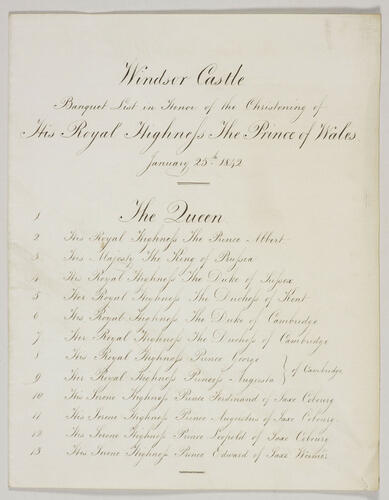 Windsor Castle
Banquet List in Honor of the Christening of
His Royal Highneſs The Prince of Wales
January 25th 1842
1 The Queen
2 His Royal Highneſs The Prince Albert
3 His Majesty The King of Pruſsia
4 His Royal Highneſs The Duke of Suſsex
5 Her Royal Highneſs The Ducheſs of Kent
6 His Royal Highneſs The Duke of Cambridge
7 Her Royal Highneſs The Ducheſs of Cambridge
8 His Royal Highneſs Prince George
of Cambridge
9 Her Royal Highneſs Princeſs Augusta
10 His Serene Highneſs Prince Ferdinand of Saxe Cobourg
11 His Serene Highneſs Prince Augustus of Saxe Cobourg
12 His Serene Highneſs Prince Leopold of Saxe Cobourg
13 His Serene Highneſs Prince Edward of Saxe Weimar